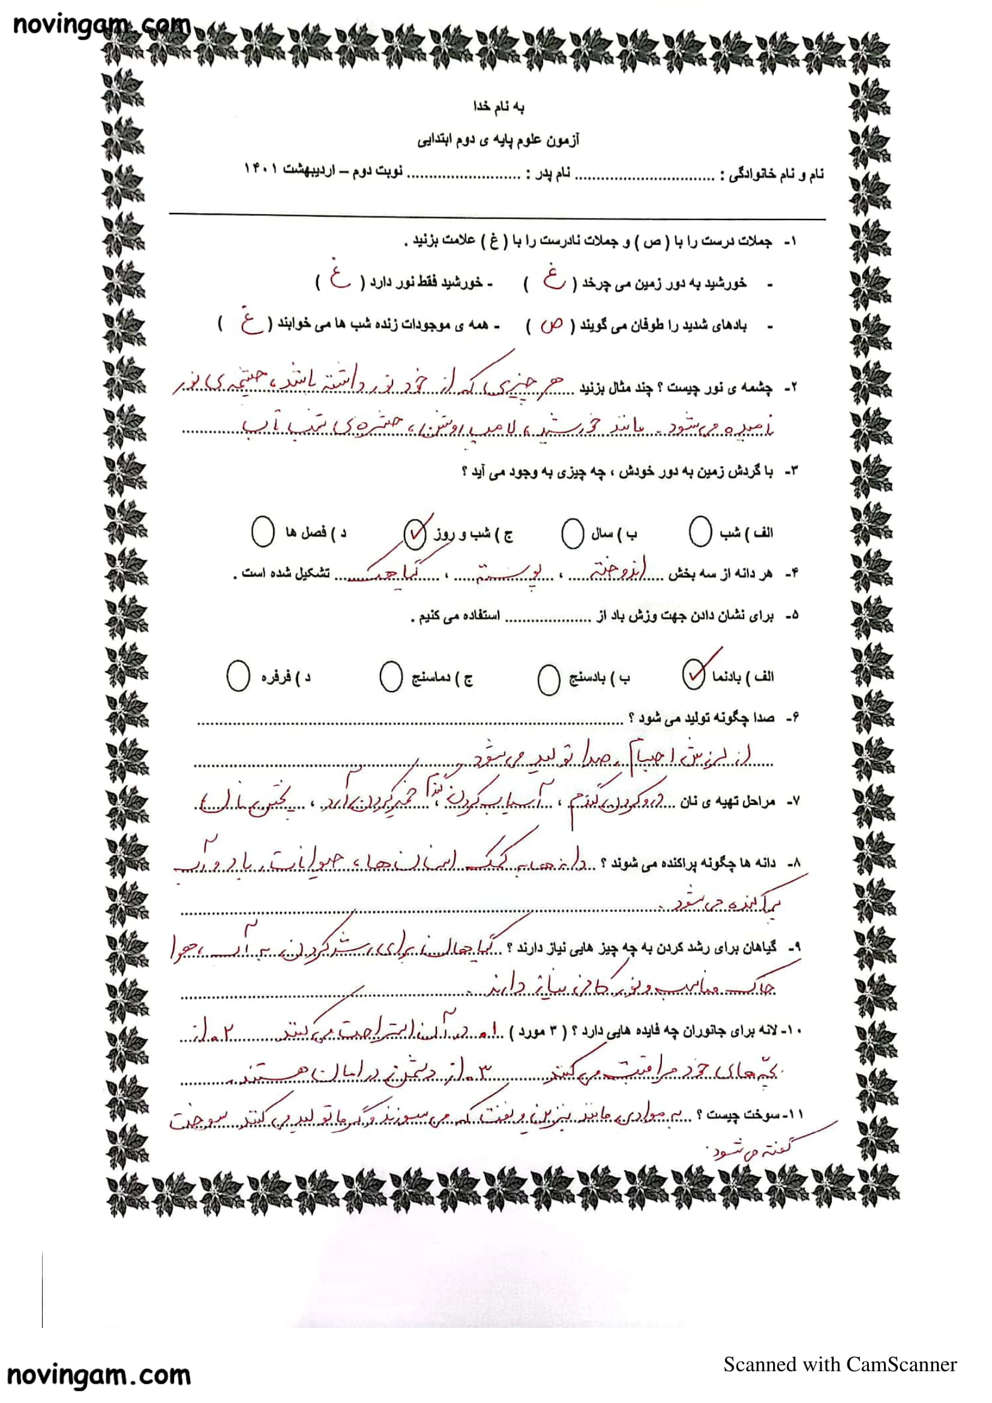 novingam.com
به نام خدا
آزمون علوم پایه ی دوم ابتدایی
نام و نام خانوادگی : .............................. نام پدر : ........................ نوبت دوم – اردیبهشت ۱۴۰۱
۱- جملات درست را با ( ص ) و جملات نادرست را با ( غ ) علامت بزنید .
- خورشید به دور زمین می چرخد ( غ ) - خورشید فقط نور دارد ( غ )
- بادهای شدید را طوفان می گویند ( ص ) - همه ی موجودات زنده شب ها می خوابند ( غ )
۲- چشمه ی نور چیست ؟ چند مثال بزنید هر چیزی که از خود نور داشته باشد، چشمه ی نور
نامیده می شود. مانند خورشید، لامپ روشن، حشره ی شب تاب
۳- با گردش زمین به دور خودش ، چه چیزی به وجود می آید ؟
الف ) شب ب ) سال ج ) شب و روز ✓ د ) فصل ها
۴- هر دانه از سه بخش اندوخته ، پوسته ، گیاهک تشکیل شده است .
۵- برای نشان دادن جهت وزش باد از .................... استفاده می کنیم .
الف ) بادنما ✓ ب ) بادسنج ج ) دماسنج د ) فرفره
۶- صدا چگونه تولید می شود ؟
از لرزش اجسام صدا تولید می شود.
۷- مراحل تهیه ی نان درو کردن گندم ، آسیاب کردن گندم ، خمیر کردن آرد ، پختن نان
۸- دانه ها چگونه پراکنده می شوند ؟ دانه ها به کمک انسان ها، حیوانات، باد و آب
پراکنده می شود.
۹- گیاهان برای رشد کردن به چه چیز هایی نیاز دارند ؟ گیاهان برای رشد کردن به آب، هوا
خاک مناسب و نور کافی نیاز دارند.
۱۰- لانه برای جانوران چه فایده هایی دارد ؟ ( ۳ مورد ) ۱. در آن استراحت می کنند ۲. از
بچه های خود مراقبت می کنند ۳. از دشمن در امان هستند.
۱۱- سوخت چیست ؟ به موادی مانند بنزین و نفت که می سوزند و گرما تولید می کنند سوخت
گفته می شود.
Scanned with CamScanner
novingam.com